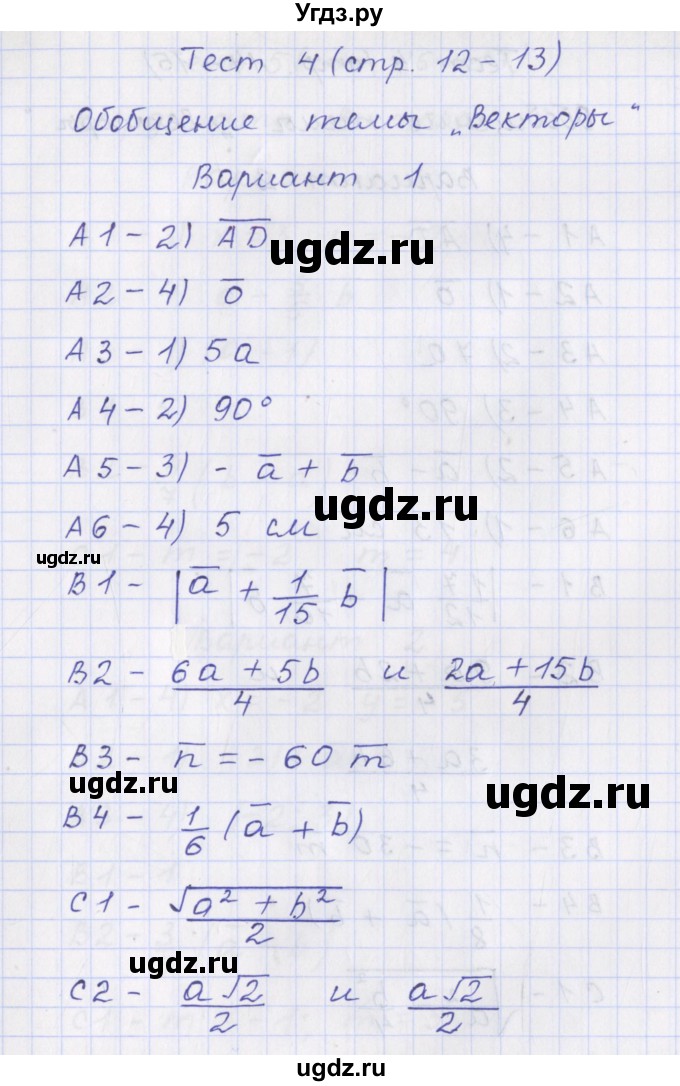 Угдз.ру
Тест 4 (стр. 12 - 13)
Обобщение темы „Векторы“
Вариант 1
А1 - 2) A̅D̅
ugdz.ru
А2 - 4) o̅
ugdz.ru
А3 - 1) 5a
А4 - 2) 90°
А5 - 3) - a̅ + b̅
ugdz.ru
А6 - 4) 5 см
ugdz.ru
В1 - |a̅ + 1/15 b̅|
В2 - (6a + 5b)/4 и (2a + 15b)/4
ugdz.ru
В3 - n̅ = - 60 m̅
ugdz.ru
ugdz.ru
В4 - 1/6 (a̅ + b̅)
С1 - √(a² + b²)/2
ugdz.ru
С2 - a√2/2 и a√2/2
ugdz.ru
ugdz.ru